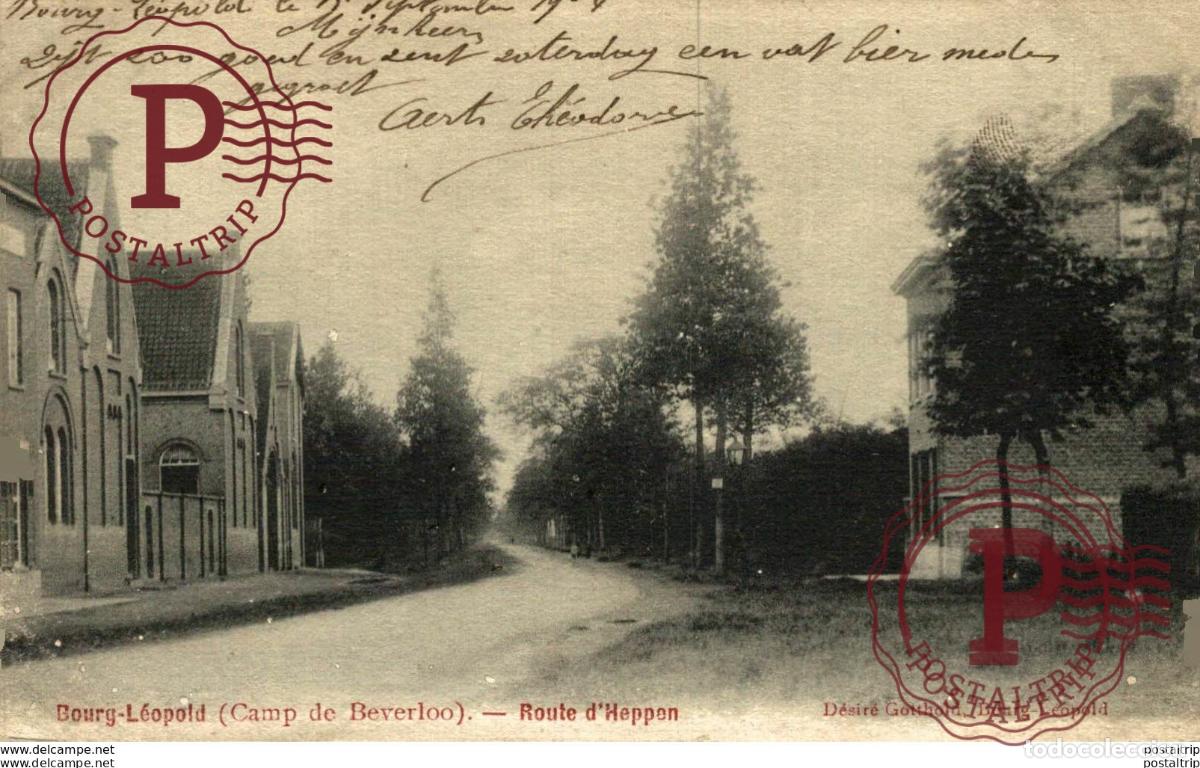 Bourg-Léopold le 5 Septembre 19
Mijnheer
Zijt zoo goed en zent zaterdag een vat bier mede
gegroet
Aerts Théodore
P
POSTALTRIP
Bourg-Léopold (Camp de Beverloo). — Route d'Heppen
Désiré Gotthold, Bourg-Léopold
P
POSTALTRIP
POSTALTRIP
todocoleccion
www.delcampe.net
postaltrip
www.delcampe.net
postaltrip